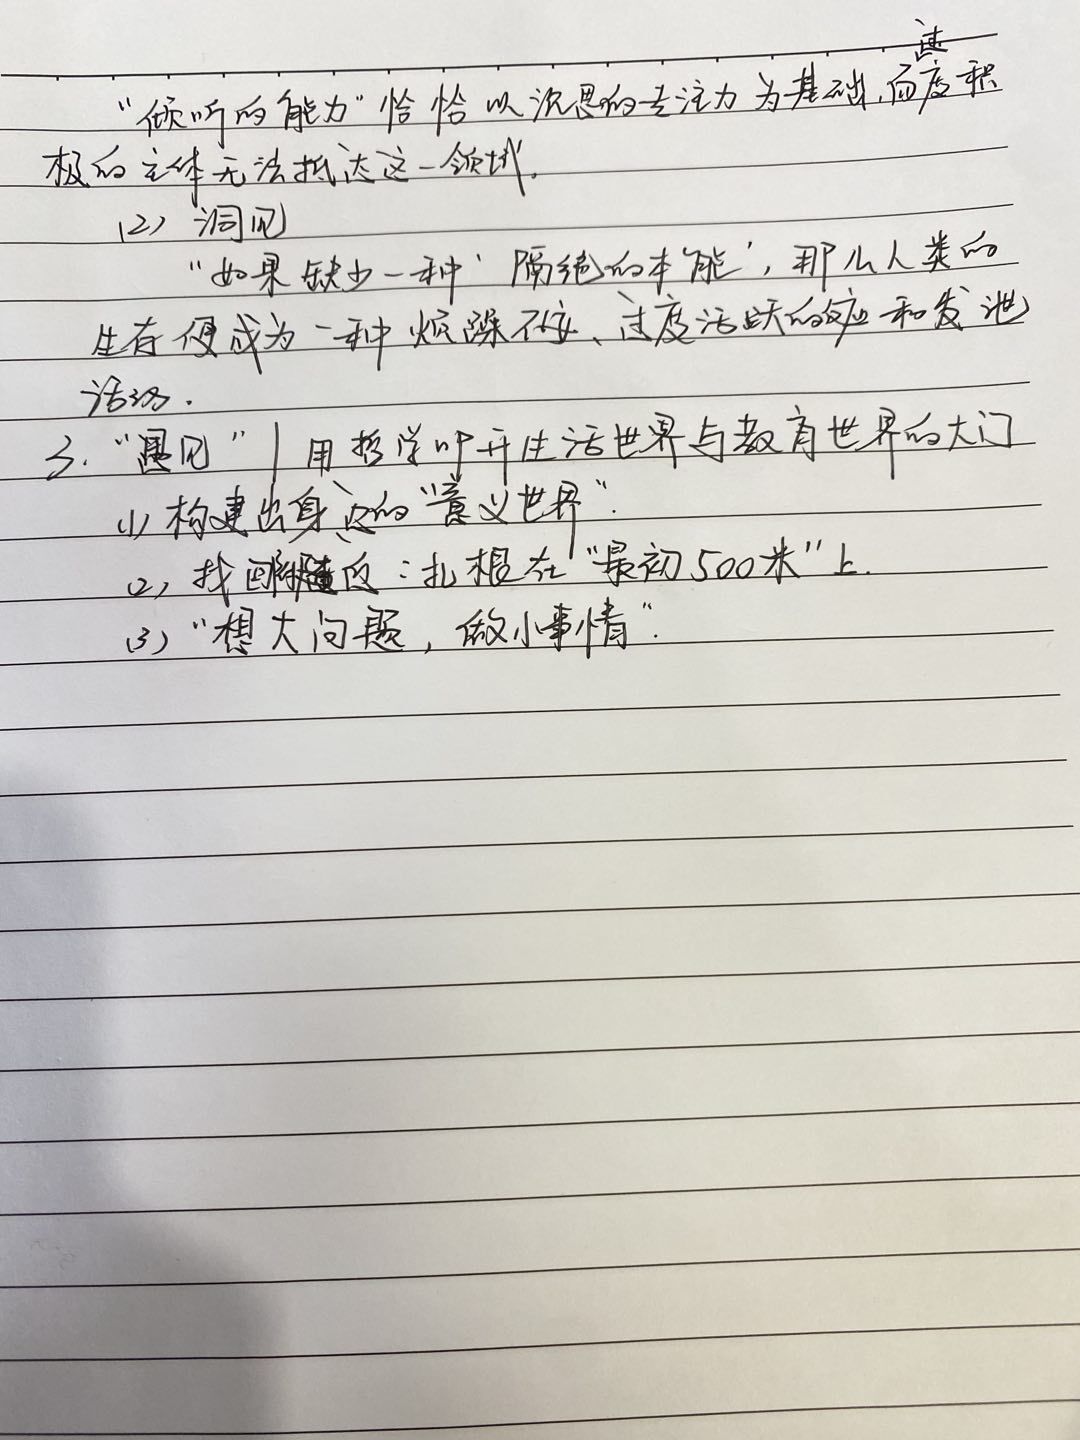 "倾听的能力"恰恰以沉思的专注力为基础,而过度积
极的主体无法抵达这一领域.
(2) 洞见
"如果缺少一种'隔绝的本能',那么人类的
生存便成为一种烦躁不安、过度活跃的反应和发泄
活动.
3. "遇见" | 用哲学叩开生活世界与教育世界的大门
(1) 构建出身边的"意义世界".
(2) 找回附近:扎根在"最初500米"上.
(3) "想大问题,做小事情".